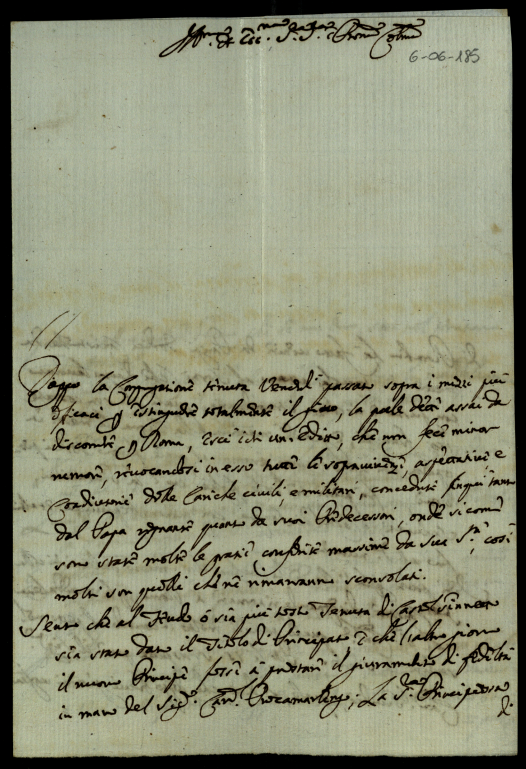 Ill.mo et Ecc.mo S.r S.r Pron.e Col.mo
6-06-185
Doppo la Congregatione tenuta Venerdì passato sopra i mezzi più
efficaci p estinguere totalmente il giuoco, la quale dette assai da
discorrere p Roma, uscì un Editto, che non fece minor
rumore, revocandosi in esso tutte le sopravivenze, aspettative, e
Coadiutorie delle Cariche civili, e militari, concedute fin quì tanto
dal Papa regnante quanto da suoi Predecessori, onde si come
son state molte le gratie conferite massime da Sua S.tà, così
molti son quelli che ne rimarranno sconsolati.
Sento che al feudo ò sia più tosto Tenuta di Castel
sia stato dato il Titolo di Principato e che l'altro giorno
il nuovo Principe fosse à prestare il giuramento di fedeltà
in mano del Sig.r Card. ; La S.ra Principessa
di